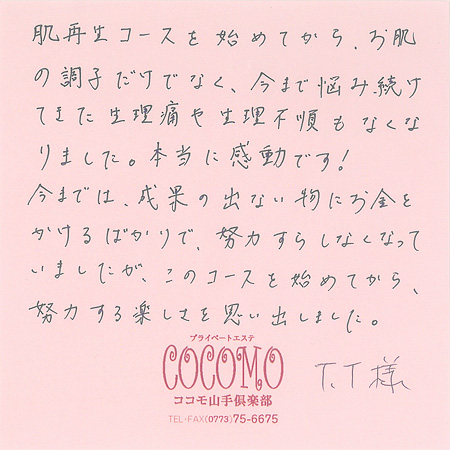 肌再生コースを始めてから、お肌
の調子だけでなく、今まで悩み続け
てきた生理痛や生理不順もなくな
りました。本当に感動です!
今までは、成果の出ない物にお金を
かけるばかりで、努力すらしなくなって
いましたが、このコースを始めてから、
努力する楽しさを思い出しました。
プライベートエステ
COCOMO
ココモ山手倶楽部
TEL・FAX(0773)75-6675
T.T様